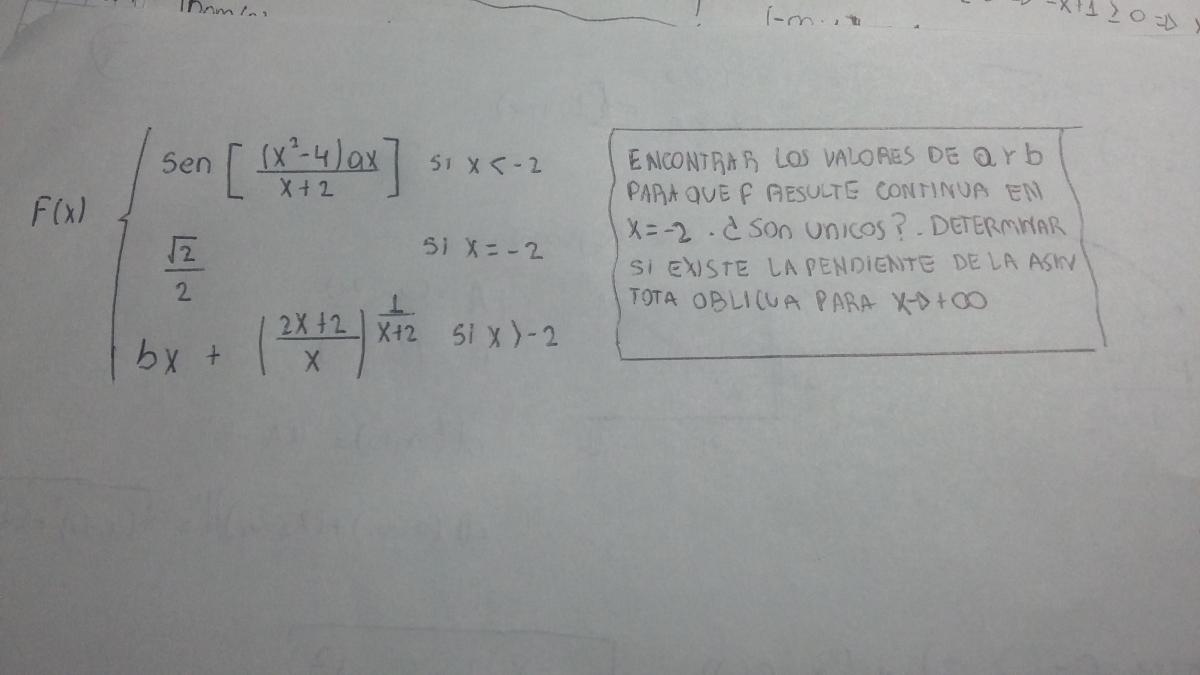 -x+1 ≥ 0 ⇒
F(x)
Sen [ (x²-4)ax / x+2 ] si x < -2
√2 / 2 si x = -2
bx + ( 2x+2 / x )^(1 / x+2) si x > -2
ENCONTRAR LOS VALORES DE a Y b
PARA QUE F RESULTE CONTINUA EN
X=-2. ¿SON UNICOS?. DETERMINAR
SI EXISTE LA PENDIENTE DE LA ASIN
TOTA OBLICUA PARA X→+∞